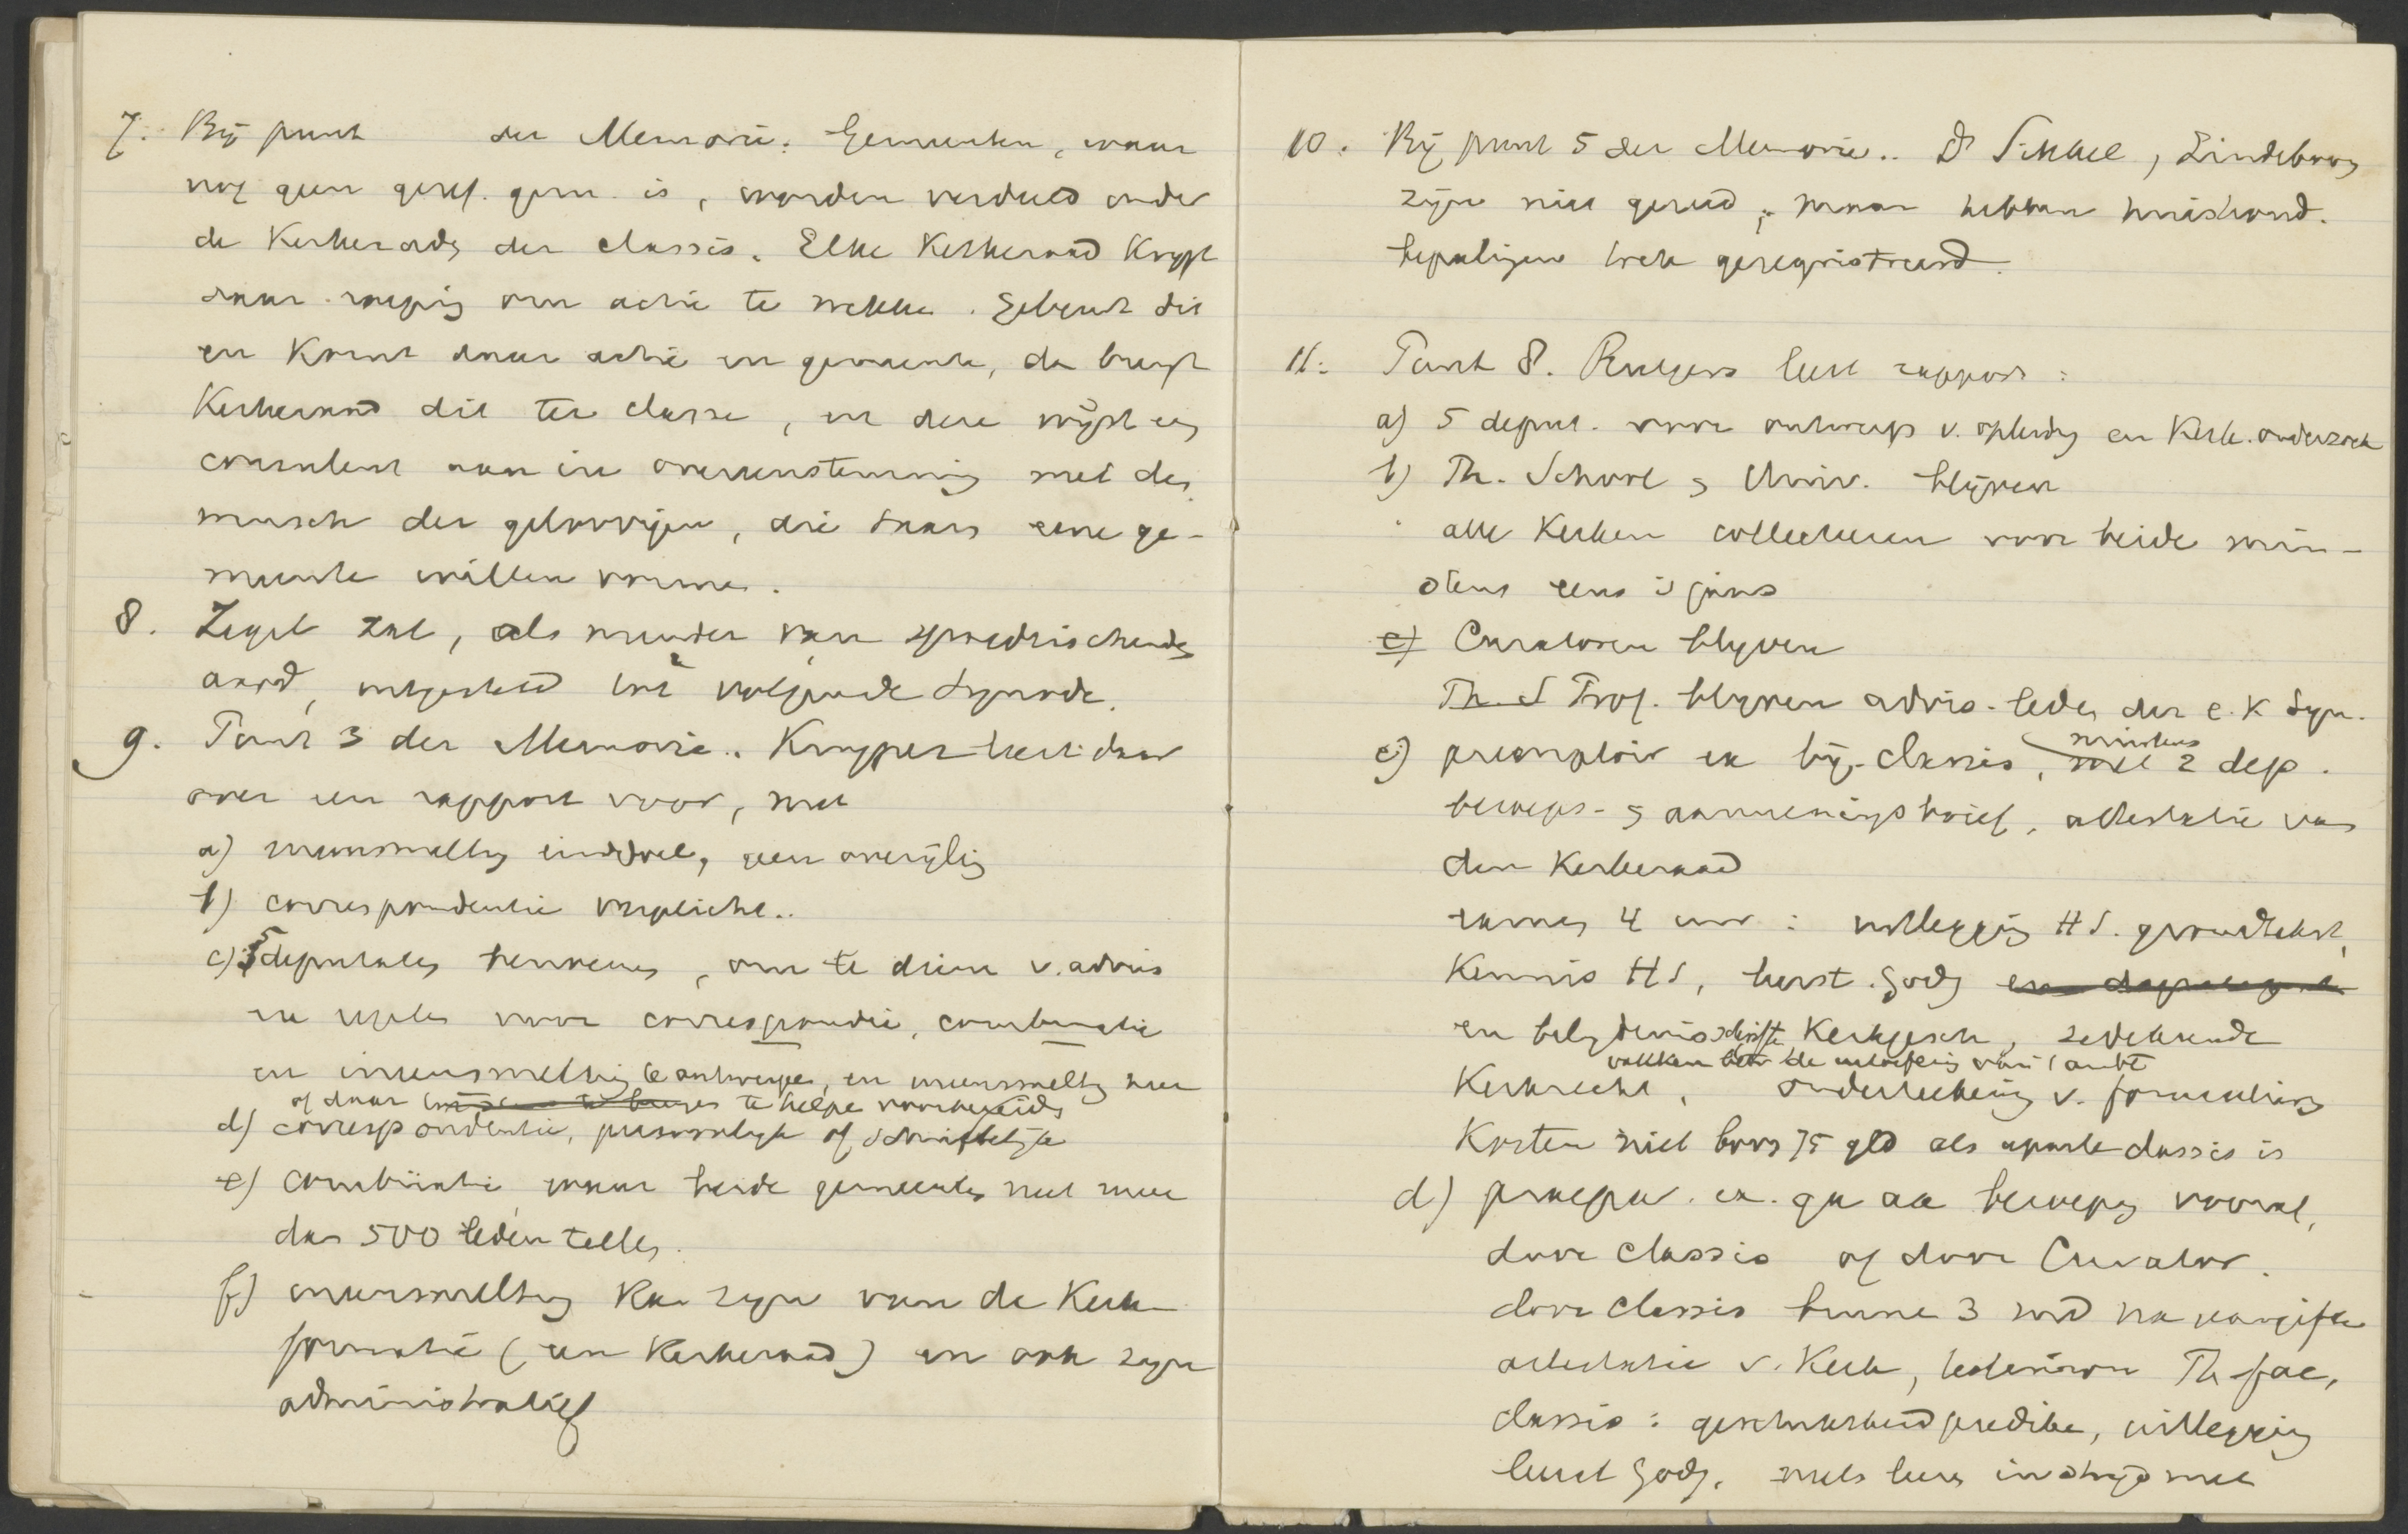 7. Bij punt der Memorie. Gemeenten, waar
nog geen geref. gem. is, worden verdeeld onder
de Kerkerads der classis. Elke Kerkeraad krijgt
daar roeping om actie te wekke. Gebeurt dit
en komt daar actie in gemeente, de brengt
Kerkeraad dit ter classe, en deze wijst een
consulent aan in overeenstemming met de
wensch der geloovigen, die daar eene ge-
meente willen vormen.
8. Zegel zal, als minder van spoedeischende
aard, uitgesteld tot volgende Synode.
9. Punt 3 der Memorie. Kuyper leest daar
over een rapport voor, met
a) ineensmelting einddoel, geen overijling
b) correspondentie verplicht.
c) 5 deputaten benoemen, om te dienen v. advies
en regels voor correspondie, combinatie
en ineensmelting te ontwerpe, en ineensmelting hier
of daar te helpe voorbereide
d) correspondentie, persoonlijk of schriftelijke
e) combinatie waar beide gemeenten niet meer
dan 500 leden tellen.
f) ineensmelting kan zijn van de Kerk
formatie (een Kerkeraad) en ook zijn
administratief
10. Bij punt 5 der Memorie. Ds Sikkel, Lindeboom
zijn niet gereed, maar hebben huishoud.
bepalingen geregistreerd.
11. Punt 8. Rutgers leest rapport:
a) 5 deput. voor ontwerp v. opleiding en Kerk. onderzoek
b) Th. School & Univ. blijven
alle Kerken collecteren voor beide min-
stens eens 's jaars
c) Curatoren blijven
Th. S Prof. blijven advis. leden der e. k Syn.
c) peremptoir ex bij classis, minstens 2 dep.
beroeps- & aannemingsbrief, attestatie van
den Kerkeraad
samen 4 uur: uitlegging HS. grondtekst,
Kennis HS, leerst. Godg
en belydenisschrifte Kerkgesch, zedekunde
vakken de uitoefening van 't ambt
Kerkrecht, onderteekening v. formulieren
Kosten niet boven 75 gld als aparte classis is
d) praepar. ex. ga aa beroeping vooraf,
door classis of door Curator.
door classis binne 3 mnd na aangifte
attestatie v. Kerk, testimon Th fac,
classis: geschiktheid predike, uitlegging
leerst Godg, niets leeren in strijd met